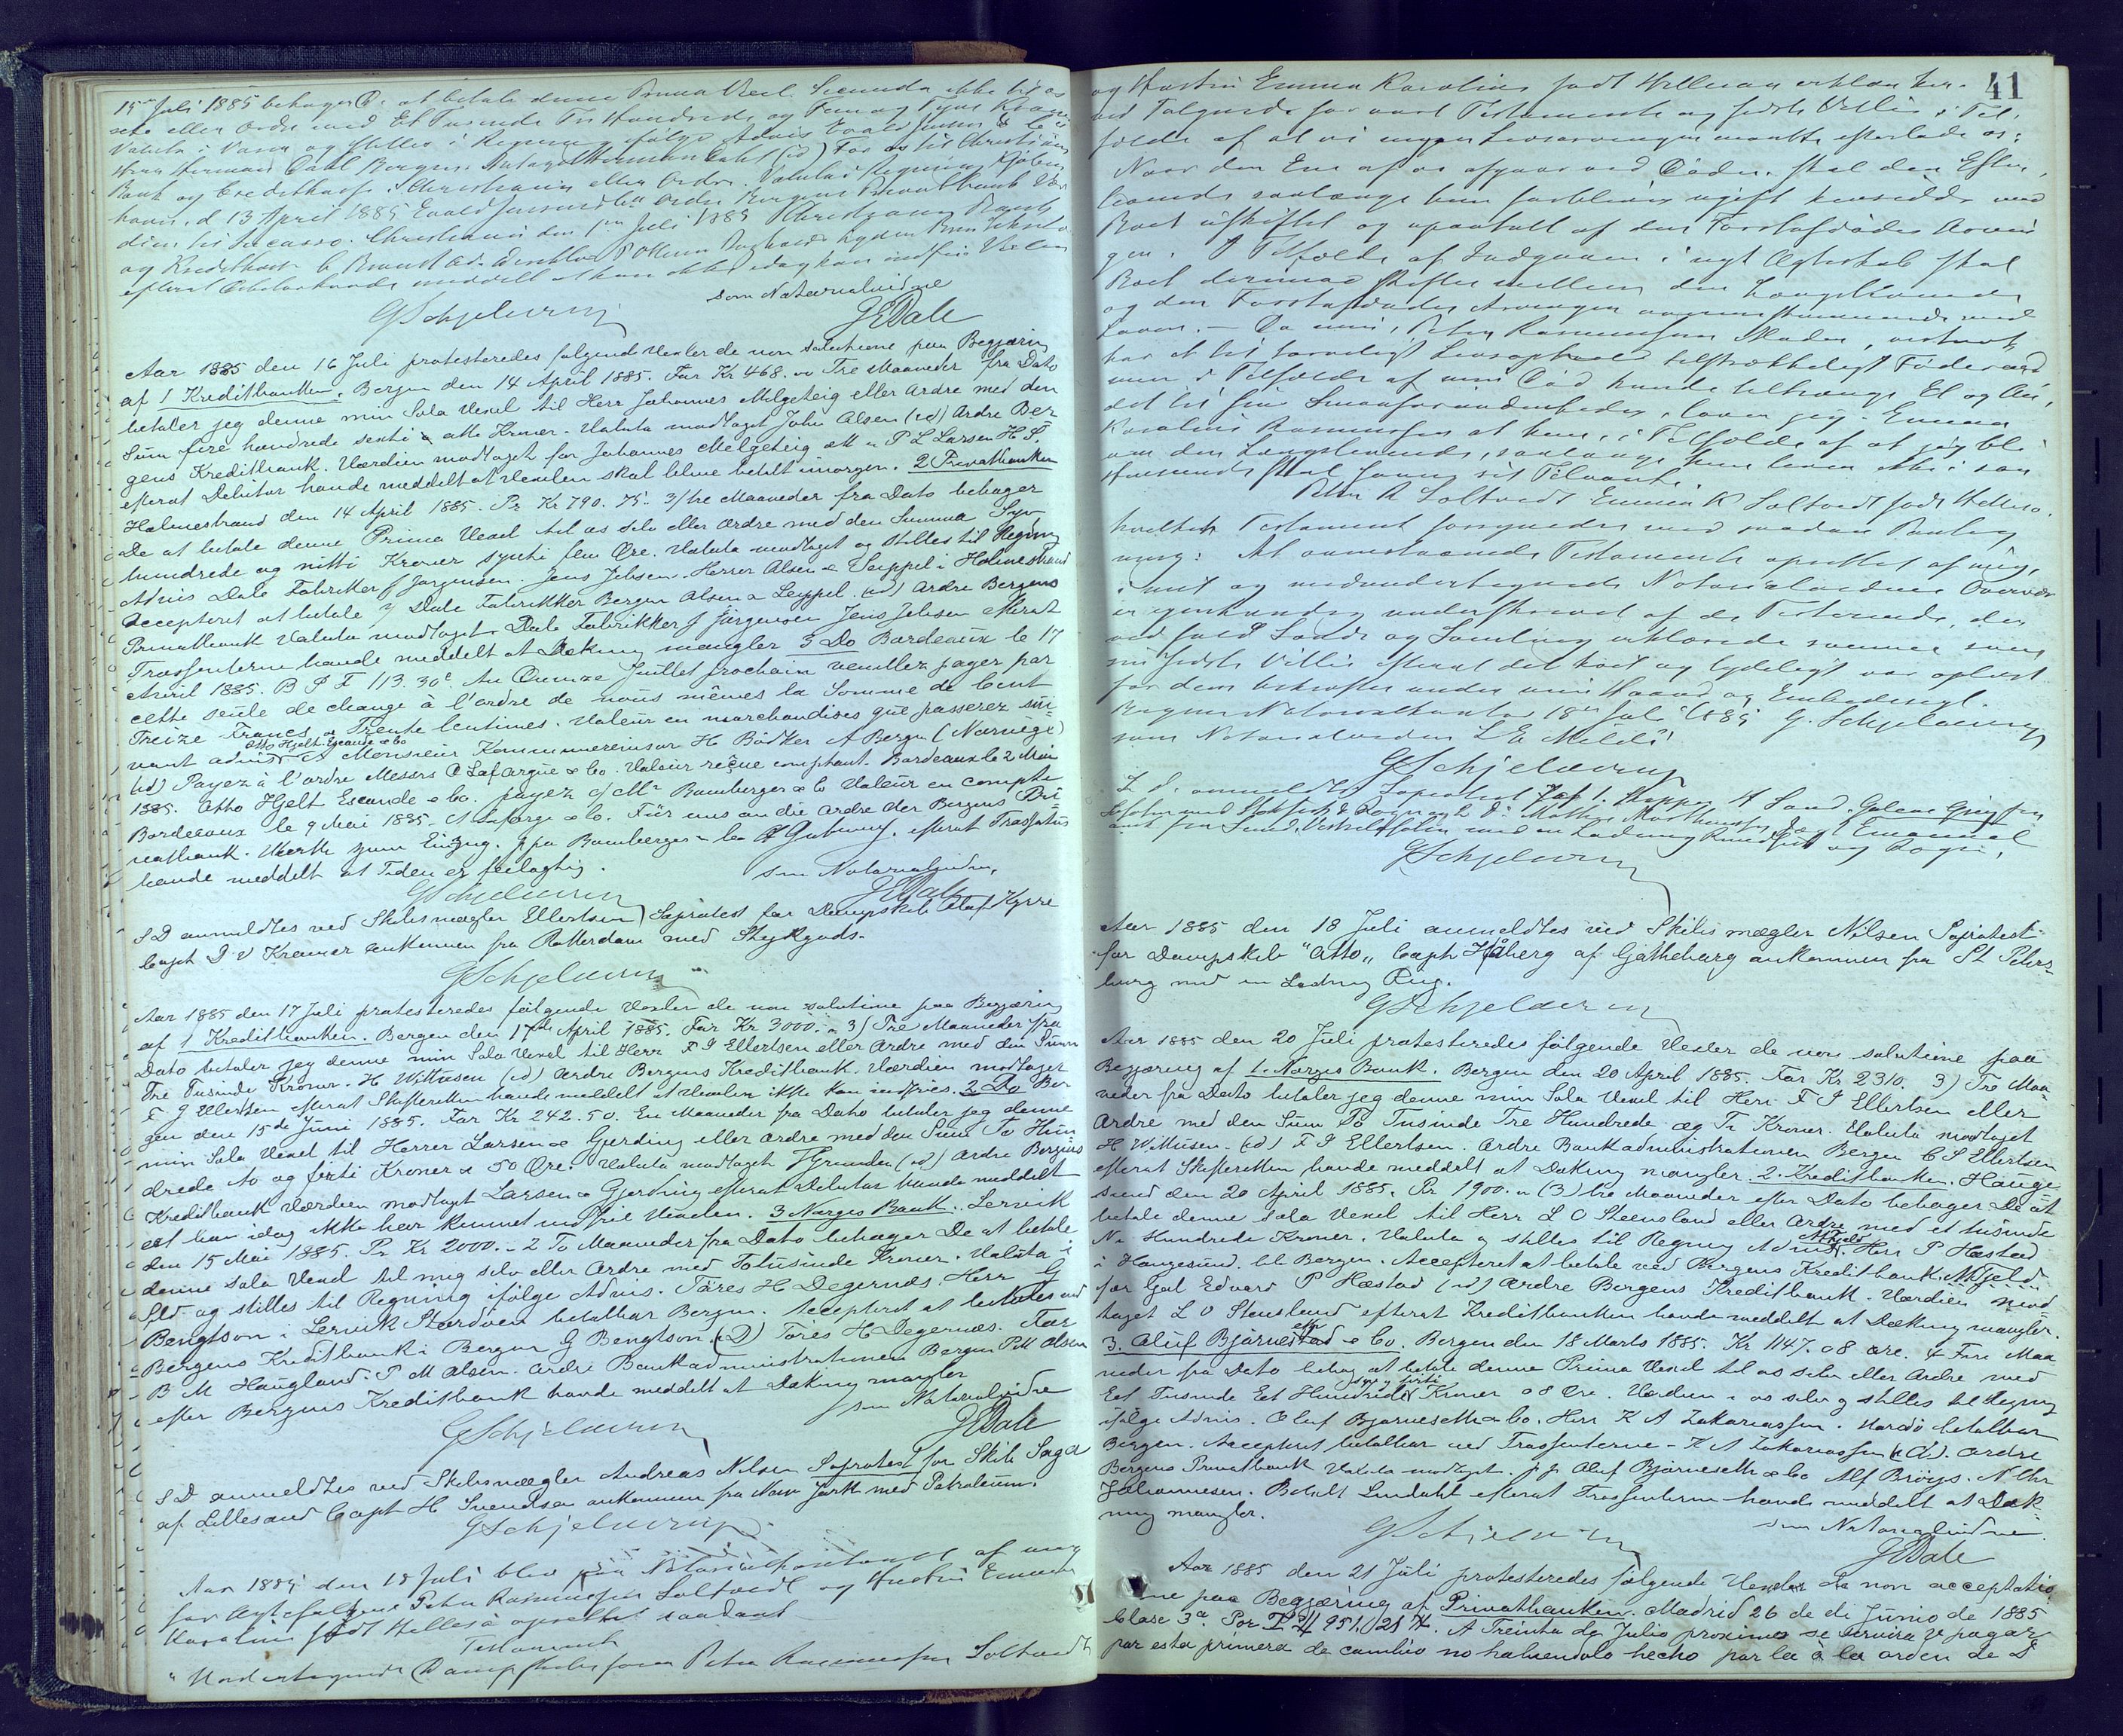 15de Juli 1885 behager De at betale denne Prima Vexl. Secunda ikke til os
selv eller Ordre med Et Tusinde Tre Hundrede og Kroner
Valuta i Varer og stilles i Regning ifølge Advis Evald &
Herr Herman Dahl Bergen. Antaget Herman Dahl (id) For os til Christiania
Bank og Creditkasse i Christiania eller Ordre. Valuta i Regning Kjøben
havn d 13 April 1885 Evald Ordre Bergens Privatbank Vær
dien til Incasso. Christiania den Juli 1885 Christiania Bank
og Kreditkasse
efterat havde meddelt at han ikke idag kan indfrie Vexlen
som Notarialvidne
GSchjelderup JEDale
Aar 1885 den 16 Juli protesteredes følgende Vexler de non solutione paa Begjæring
af 1 Kreditbanken. Bergen den 14 April 1885. For Kr 468. Tre Maaneder fra Dato
betaler jeg denne min Sola Vexel til Herr Johannes Melgeteig eller Ordre med den
Sum fire hundrede sexti & otte Kroner. Valuta modtaget John Olsen (id) Ordre Ber
gens Kreditbank. Værdien modtaget for Johannes Melgeteig P L Larsen H S.
efterat Debitor havde meddelt at Vexelen skal blive betalt imorgen. 2 Privatbanken
Holmestrand den 14 April 1885. Pr Kr 790. 75. 3/ tre Maaneder fra Dato behager
De at betale denne Prima Vexel til os selv eller Ordre med den Summa Syv
hundrede og nitti Kroner sytti fem Øre. Valuta modtaget og stilles til Regning
Advis Dale Fabrikker J Jørgensen. Jens Jebsen. Herrer Olsen & Leippel i Holmestrand
Accepteret at betale Dale Fabrikker Bergen Olsen & Leippel. (id) Ordre Bergens
Privatbank Valuta modtaget. Dale Fabrikker J Jørgensen Jens Jebsen efterat
Trassenterne havde meddelt at Dækning mangler 3 Do Bordeaux le 17
Avril 1885. B P F 113. 30c Au Quinze Juillet prochain veuillez payer par
cette seule de change à l'ordre de nous mêmes la Somme de Cent
Treize Francs & Trente Centimes. Valeur en marchandises que passerez sui
vant advis Otto Hjelt Escande & Co Monsieur H Bödker A Bergen (Norvége)
(id) Payez à l'ordre Messrs C Lafargue & Co. Valeur reçue comptant. Bordeaux le 2 Mai
1885. Otto Hjelt Escande & Co. payez o/ Mrs Bamberger & Co Valeur en compte
Bordeaux le 9 Mai 1885 & Co. Für uns an die Ordre der Bergens Pri
vatbank. Werth zum Einzug. ppa Bamberger & Co efterat Trassatus
havde meddelt at Tiden er feilagtig.
som Notarialvidne,
GSchjelderup JEDale
S D anmeldtes ved Skibsmægler Ellertsen Søprotest for Dampskib Olaf Kyrre
Capt D V Kramer ankommen fra Rotterdam med Stykgods.
GSchjelderup
Aar 1885 den 17 Juli protesteredes følgende Vexler de non solutione paa Begjæring
af 1 Kreditbanken. Bergen den 17de April 1885. For Kr 3000. 3/ Tre Maaneder fra
Dato betaler jeg denne min Sola Vexel til Herr F J Ellertsen eller Ordre med den Sum
Tre Tusinde Kroner. H Wittusen (id) Ordre Bergens Kreditbank. Værdien modtaget
F J Ellertsen efterat Skifteretten havde meddelt at Vexelen ikke kan indfries. 2 Do Ber
gen den 15de Juni 1885. For Kr 242. 50. En Maaneder fra Dato betaler jeg denne
min Sola Vexel til Herrer Larsen & Gjerding eller Ordre med den Sum To Hun
drede to og førti Kroner & 50 Øre. Valuta modtaget (id) Ordre Bergens
Kreditbank Værdien modtaget Larsen & Gjerding efterat Debitor havde meddelt
at han idag ikke har kunnet indfrie Vexelen. 3 Norges Bank. Lervik
den 15 Mai 1885. Pr Kr 2000. - 2 To Maaneder fra Dato behager De at betale
denne Sola Vexel til mig selv eller Ordre med Totusinde Kroner. Valuta i
Sld og stilles til Regning ifølge Advis. Töres H Degernæs. Herr G
Bengtson i Lervik Stordöen betalbar Bergen. Accepteret at betales ved
Bergens Kreditbank i Bergen G Bengtson. (D) Töres H Degernæs. For
B M Haugland. P M Olsen. Ordre Bankadministrationen Bergen P M Olsen
efter Bergens Kreditbank havde meddelt at Dækning mangler
som Notarialvidne
GSchjelderup JEDale
S D anmeldtes ved Skibsmægler Andreas Nilsen Søprotest for Skib Saga
af Lillesand Capt H Svendsen ankommen fra New York med Petroleum.
GSchjelderup
Aar 1885 den 18 Juli blev paa Notarialkontoret af mig
for Ægtefolkene Peter Rasmussen Soltvedt og Hustru Emma
Karoline født Hellesö oprettet saadant
Testament
"Undertegnede Dampskibsfører Peter Rasmussen Soltvedt
41
og Hustru Emma Karoline født erklærer her
ved Følgende for vort Testamente og sidste Villie i Til,
fælde af at vi ingen Livsarvinger maatte efterlade os:
Naar den Ene af os afgaar ved Døden, skal den Efter,
levende saalænge hun forbliver ugift hensidde med
Boet uskiftet og upaatalt af den Førstafdødes Arvin
ger. I Tilfælde af Indgaaen i nyt Ægteskab skal
Boet derimod skiftes mellem den Længstlevende
og den Førstafdødes Arvinger overensstemmende med
Loven. — Da min, Peter Rasmussens Moder,
har et til Livsophold tilstrækkeligt Føderaad
men i Tilfælde af min Død kunde tiltrænge Et og An,
det til sine Smaafornødenheder, lover jeg Emma
Karoline Rasmussen at hun, i Tilfælde af at jeg bli
ver den Længstlevende, saalænge hun lever ikke i saa
Henseende skal savne sit Tilvante.
Peter R Soltvedt Emma K Soltvedt født Hellesö.
hvilket Testament forsynedes med saadan Paateg
ning: At ovenstaaende Testamente oprettet af mig,
i mit og medundertegnede Notarialvidnes Overvær
er egenhændig underskrevet af de Testerende, der
ved fuld Sands og Samling erklærede samme som
sin sidste Villie efterat det höit og tydeligt var oplæst
for dem bekræftes under min Haand og Embedssegl.
Bergens Notarialkontor 18de Juli 1885 G. Schjelderup
som Notarialvidne
GSchjelderup
S. D. anmeldtes Søprotest
GSchjelderup
Aar 1885 den 18 Juli anmeldtes ved Skibsmægler Nilsen Søprotest
for Dampskib "Otto" Capt Håberg af Gjøtheborg ankommen fra St Peters
burg med en Ladning Rug.
GSchjelderup
Aar 1885 den 20 Juli protesteredes følgende Vexler de non solutione paa
Begjæring af 1. Norges Bank. Bergen den 20 April 1885. For Kr. 2310. 3) Tre Maa
neder fra Dato betaler jeg denne min Sola Vexel til Herr F J Ellertsen eller
Ordre med den Sum To Tusinde Tre Hundrede og Ti Kroner. Valuta modtaget
H Wittusen. (id) F J Ellertsen. Ordre Bankadministrationen Bergen C S Ellertsen
efterat Skifteretten havde meddelt at Dækning mangler. 2. Kreditbanken. Hauge
sund den 20 April 1885. Pr 1900. (3) tre Maaneder efter Dato behager De at
betale denne Sola Vexel til Herr L O Steensland eller Ordre med et tusinde
Ni Hundrede Kroner. Valuta og stilles til Regning Advis. Herr P Hæstad
i Haugesund. til Bergen. Accepteret at betale ved Bergens Kreditbank. N Fjeld
for Gal Edvard P Hæstad (id) Ordre Bergens Kreditbank. Værdien mod
taget L O Stensland efterat Kreditbanken havde meddelt at Dækning mangler.
3. Oluf Bjarneseth & Co. Bergen den 18 Marts 1885. Kr 1147. 08 øre. 4 Fire Maa
neder fra Dato behag at betale denne Prima Vexel til os selv eller Ordre med
Eet Tusinde Eet Hundrede syv og førti Kroner 08 Øre. Værdien i os selv og stilles til Regning
ifølge Advis. Oluf Bjarneseth & Co. Herr K A Zakariassen. Vardö betalbar
Bergen. Accepteret betalbar ved Trassenterne - K A Zakariassen (id). Ordre
Bergens Privatbank Valuta modtaget. pp Oluf Bjarneseth & Co Alf Bröys. N Chr
Johannesen. Betalt Lindahl efterat Trassenterne havde meddelt at Dæk
ning mangler.
som Notarialvidne.
GSchjelderup JEDale
Aar 1885 den 21 Juli protesteredes følgende Vexler de non acceptatio
ne paa Begjæring af Privatbanken. Madrid 26 de di Junio de 1885
Clase 3a Por 951. 21. A Treinta de Julio proximo se servira V pagar
por esta primera de cambio no habiendolo hecho por la à la orden de D